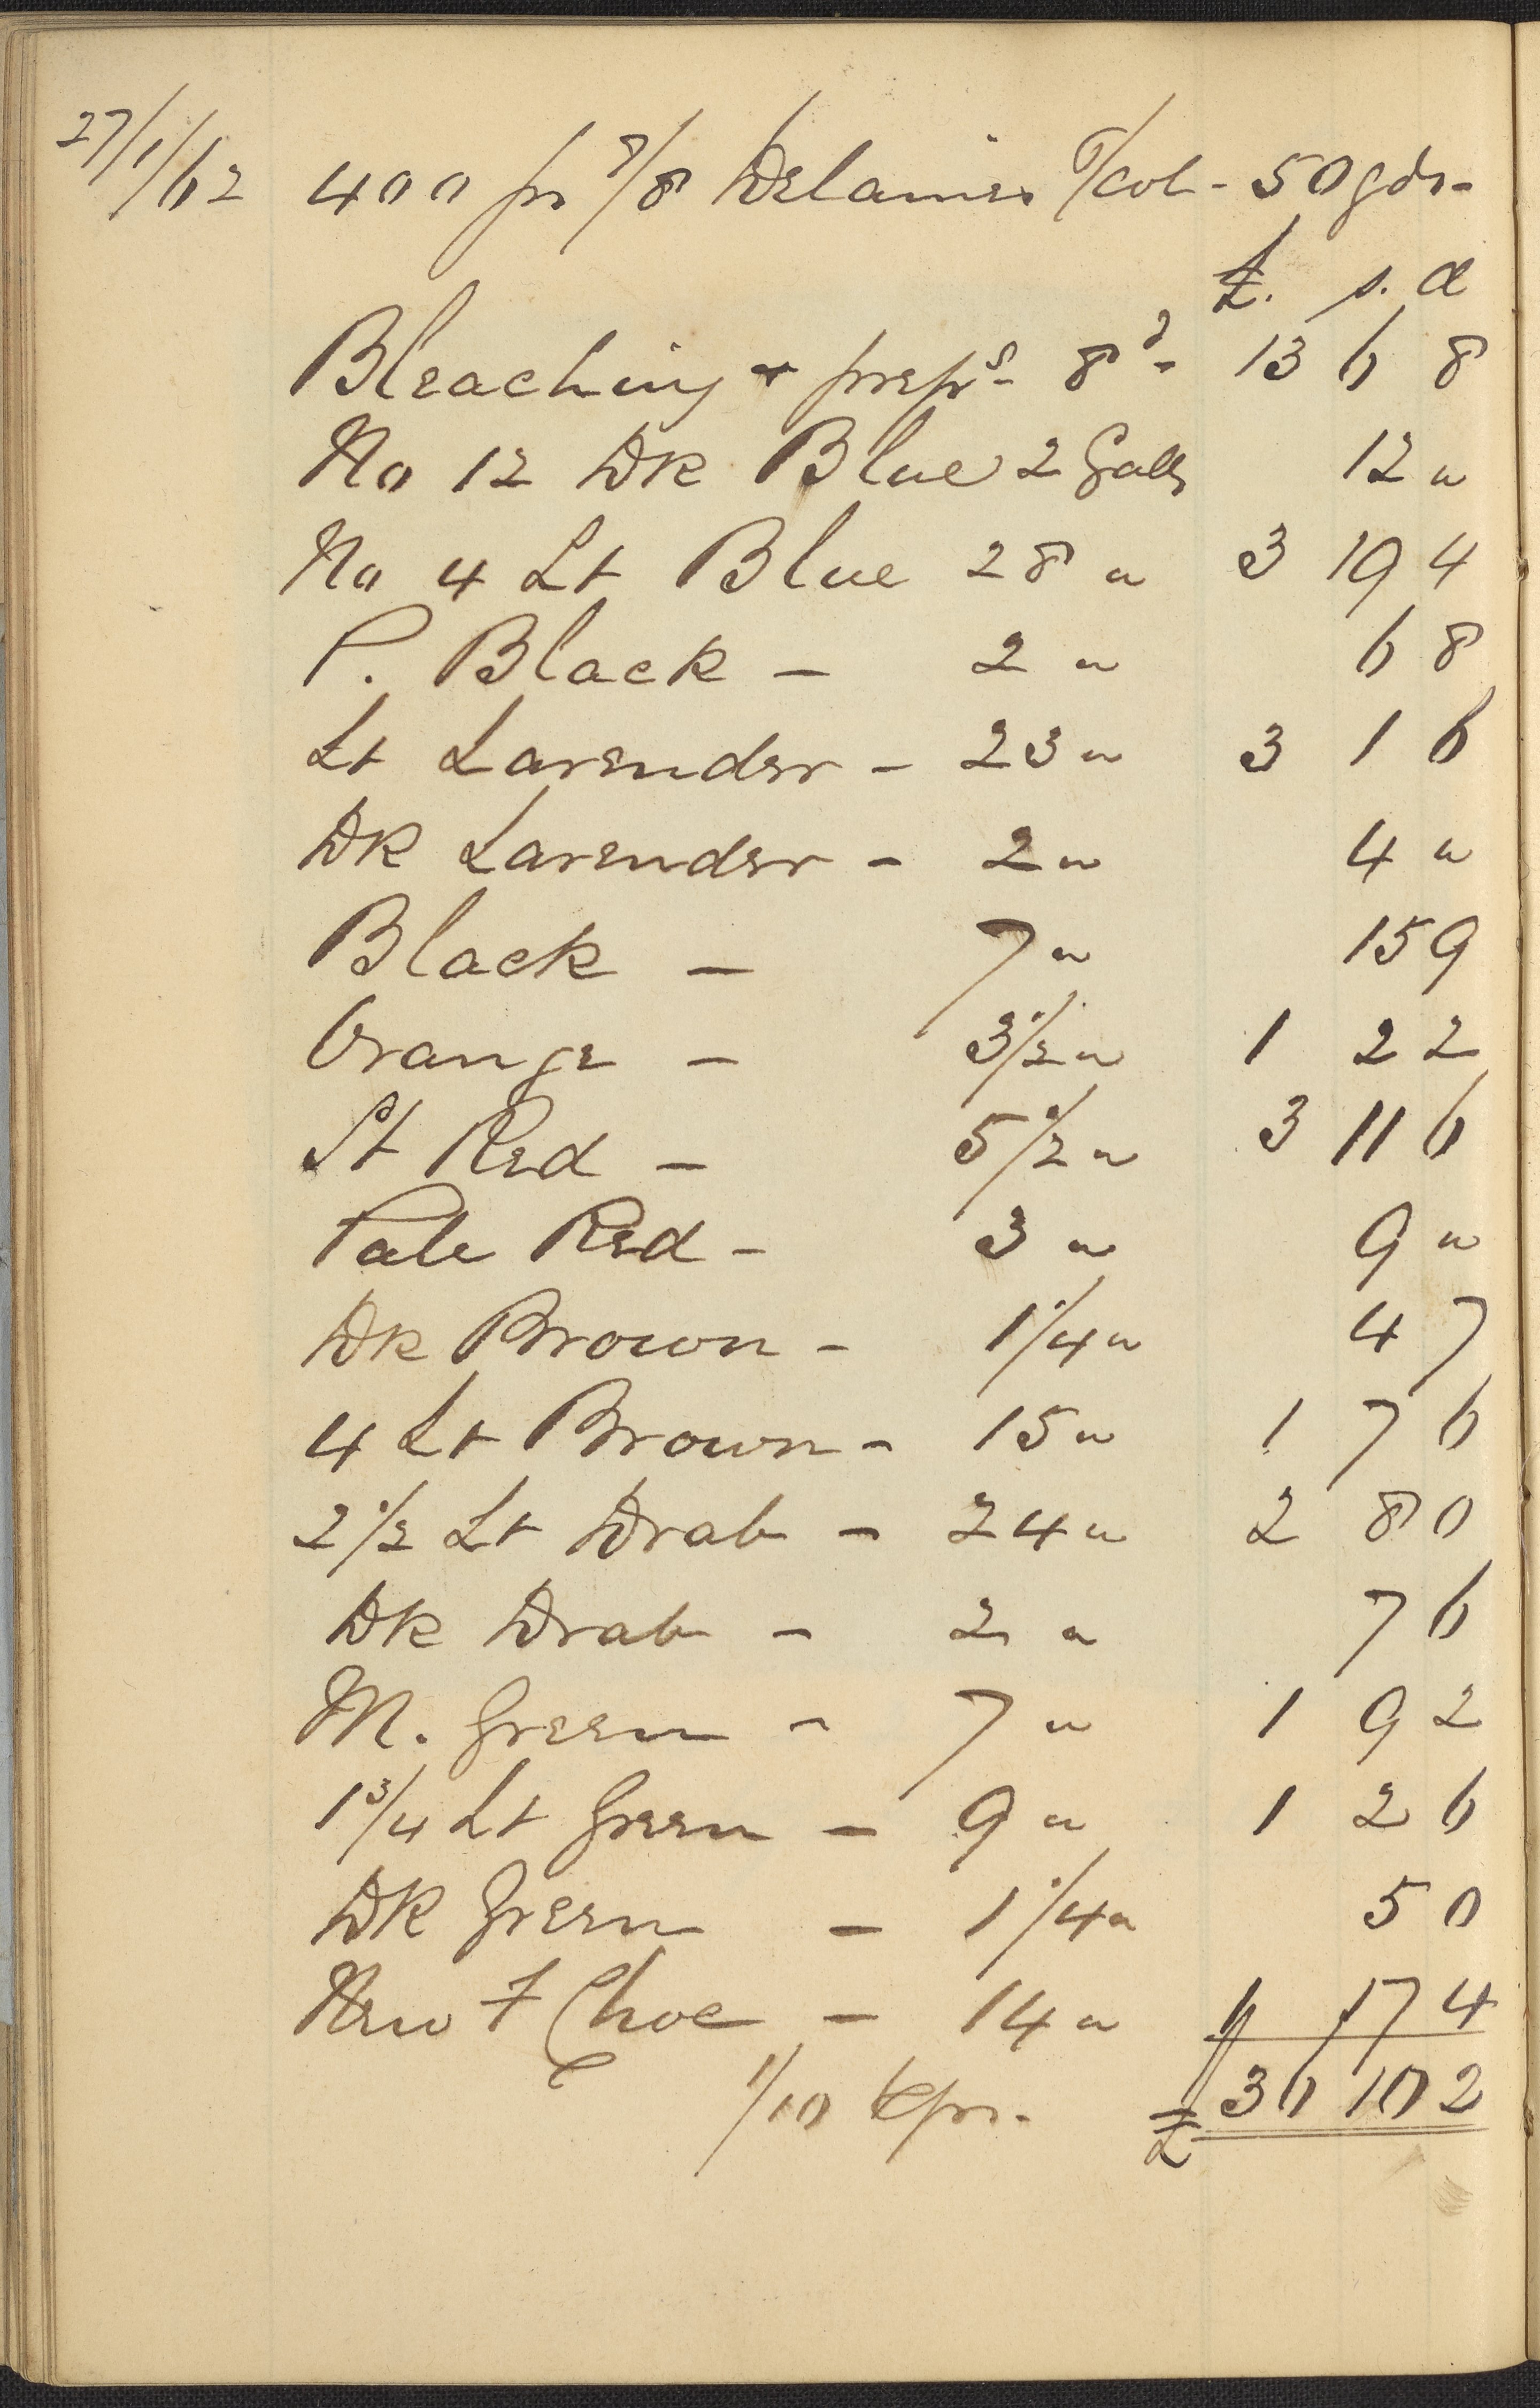 27/1/62 400 ps 7/8 Delaines 6/col - 50 yds -
£. s. d
Bleaching & prepg - 8d - 13 6 8
No 12 Dk Blue 2 Galls 12 "
No 4 Lt Blue 28 " 3 19 4
P. Black - 2 " 6 8
Lt Lavender - 23 " 3 1 6
Dk Lavender - 2 " 4 "
Black - 7 " 15 9
Orange - 3 1/2 " 1 2 2
St Red - 5 1/2 " 3 11 6
Pale Red - 3 " 9 "
Dk Brown - 1 1/4 " 4 7
4 Lt Brown - 15 " 1 7 6
2 1/2 Lt Drab - 24 " 2 8 0
Dk Drab - 2 " 7 6
M. Green - 7 " 1 9 2
1 3/4 Lt Green - 9 " 1 2 6
Dk Green - 1 1/4 " 5 0
New F Choc - 14 " 1 17 4
1/10 £ 36 10 2